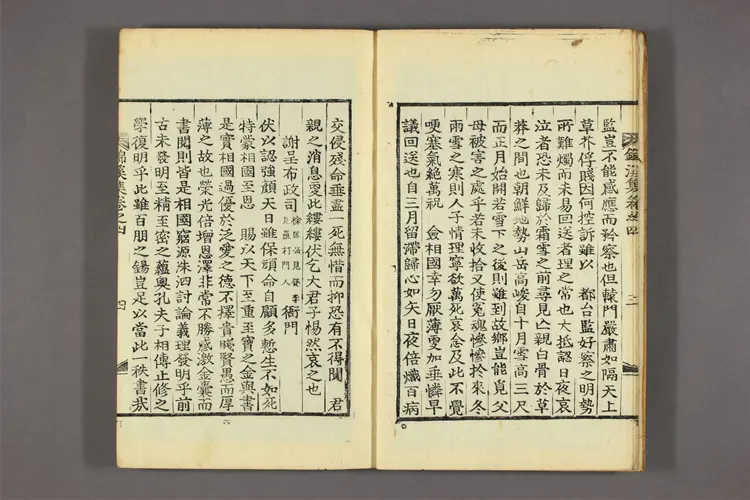 監豈不能感應而矜察也但轅門嚴肅如隔天上
草芥俘賤因何控訴雖以 都台監好察之明勢
所難燭而未易回送者理之常也大抵認日夜哀
泣者恐未及歸於霜雪之前尋見亾親白骨於草
莽之間也朝鮮地勢山岳高峻自十月雪高三尺
而正月始開若雪下之後則雖到故鄉豈能覓父
母被害之處乎若未收拾又使冤魂慘慘於來冬
雨雪之寒則人子情理寧欲萬死哀念及此不覺
哽塞氣絶萬祝 僉相國幸勿厭薄更加垂憐早
議回送也自三月留滯歸心如矢日夜倍熾百病
錦溪集卷之四
二
交侵殘命垂盡一死無惜而抑恐有不得聞 君
親之消息更此縷縷伏乞大君子惕然哀之也
謝呈布政司 衙門
伏以認強顔天日雖保頑命自顧多慙生不如死
特蒙相國至恩 賜以天下至重至寶之金與書
是實相國過優於泛愛之德不擇貴賤賢愚而厚
薄之故也榮光倍增恩澤非常不勝感激金囊而
書閲則皆是相國窮源洙泗討論義理發明乎前
古未發明至精至密之蘊奧孔夫子相傳正修之
學復明乎此雖百朋之錫豈足以當此一秩書哉
錦溪集卷之四
四